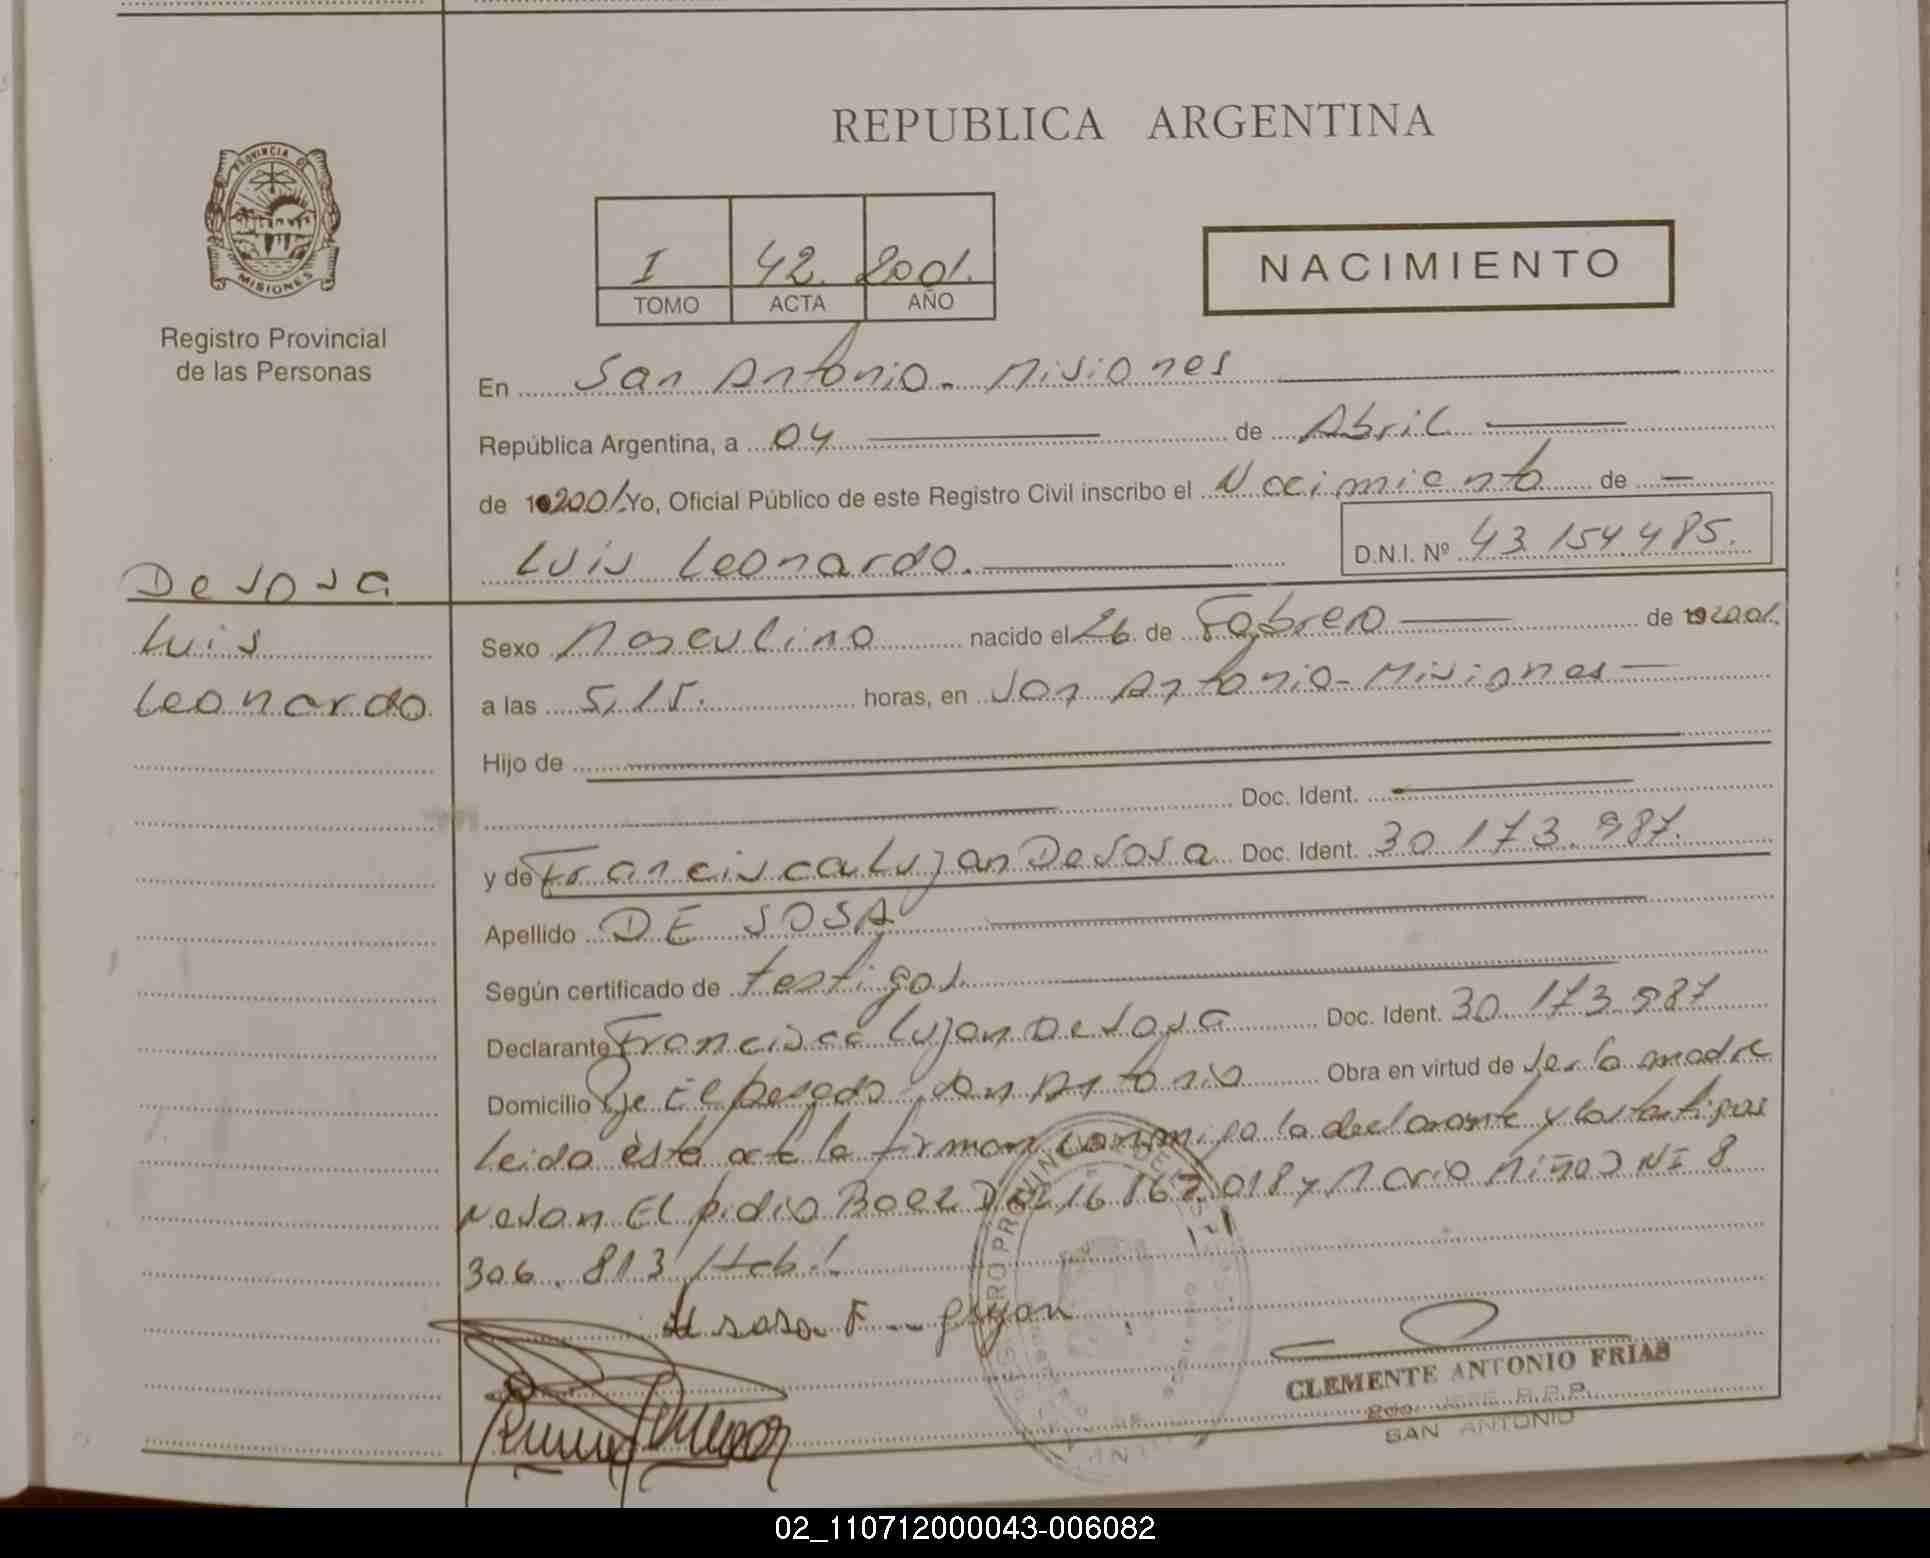 REPUBLICA ARGENTINA
PROVINCIA DE
MISIONES
Registro Provincial
de las Personas
I 42. 2001.
TOMO ACTA AÑO
NACIMIENTO
En San Antonio. Misiones
República Argentina, a 04 de Abril
de 2001. Yo, Oficial Público de este Registro Civil inscribo el Nacimiento de —
Luis Leonardo.
D.N.I. Nº 43 154 485.
De Sosa
Luis
Leonardo
Sexo Masculino nacido el 26 de Febrero de 2001.
a las 5,15. horas, en San Antonio-Misiones
Hijo de
Doc. Ident.
y de Francisca Lujan De Sosa Doc. Ident. 30 173.987.
Apellido DE SOSA
Según certificado de testigos.
Declarante Francisca Lujan De Sosa Doc. Ident. 30.173.987
Domicilio San Antonio Obra en virtud de ser la madre
leida esta acta la firman conmigo la declarante y los testigos
Nelson Elpidio Baez 16 867.018 y Mario Miño D NI 8
306.813
sosa F
CLEMENTE ANTONIO FRIAS
SAN ANTONIO
02_110712000043-006082